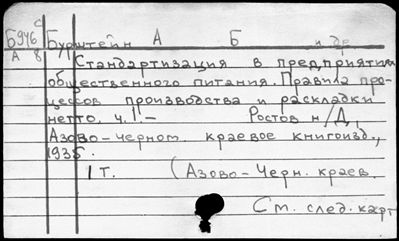 с
Б946 Бурштейн А Б и др.
А 8
Стандартизация в предприятии
общественного питания. Правила про-
цессов производства и раскладки
нетто. ч. II.- Ростов н/Д,
Азово-черном. краевое книгоизд.,
1935.
1 т. (Азово-Черн. краев.
См. след. карт